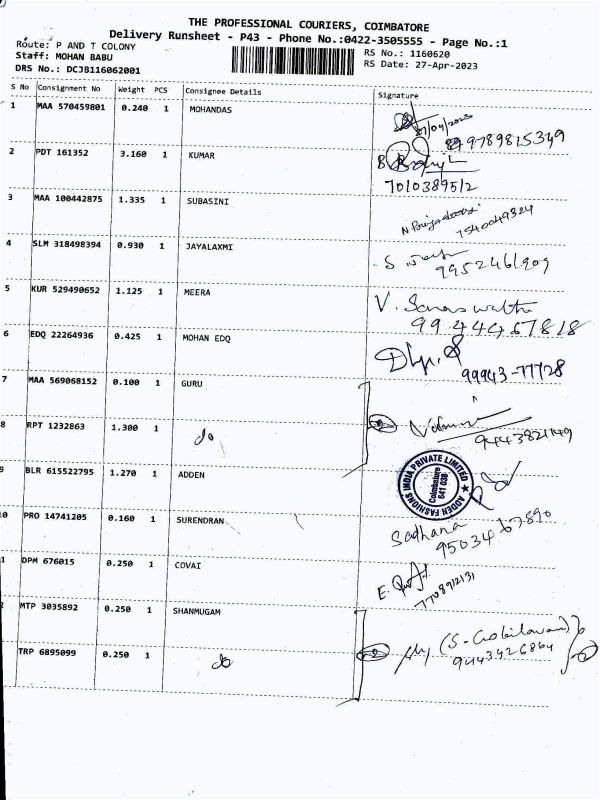 THE PROFESSIONAL COURIERS, COIMBATORE
Delivery Runsheet - P43 - Phone No.:0422-3505555 - Page No.:1
Route: P AND T COLONY
Staff: MOHAN BABU
DRS No.: DCJB116062001
RS No.: 1160620
RS Date: 27-Apr-2023
S No Consignment No Weight PCS Consignee Details Signature
1 MAA 570459801 0.240 1 MOHANDAS
27/04/2023
9789815349
2 PDT 161352 3.160 1 KUMAR
7010389512
3 MAA 100442875 1.335 1 SUBASINI
7540049324
4 SLM 318498394 0.930 1 JAYALAXMI
9952461909
5 KUR 529490652 1.125 1 MEERA
V. Saraswathi
9944467818
6 EDQ 22264936 0.425 1 MOHAN EDQ
99943-77728
7 MAA 569068152 0.100 1 GURU
8 RPT 1232863 1.300 1 do
9443821149
9 BLR 615522795 1.270 1 ADDEN
ADDEN FASHIONS INDIA PRIVATE LIMITED
Coimbatore
641 038
0 PRO 14741205 0.160 1 SURENDRAN
Sadhana
9503467890
1 DPM 676015 0.250 1 COVAI
7708912131
2 MTP 3035892 0.250 1 SHANMUGAM
9443426864
TRP 6895099 0.250 1 do